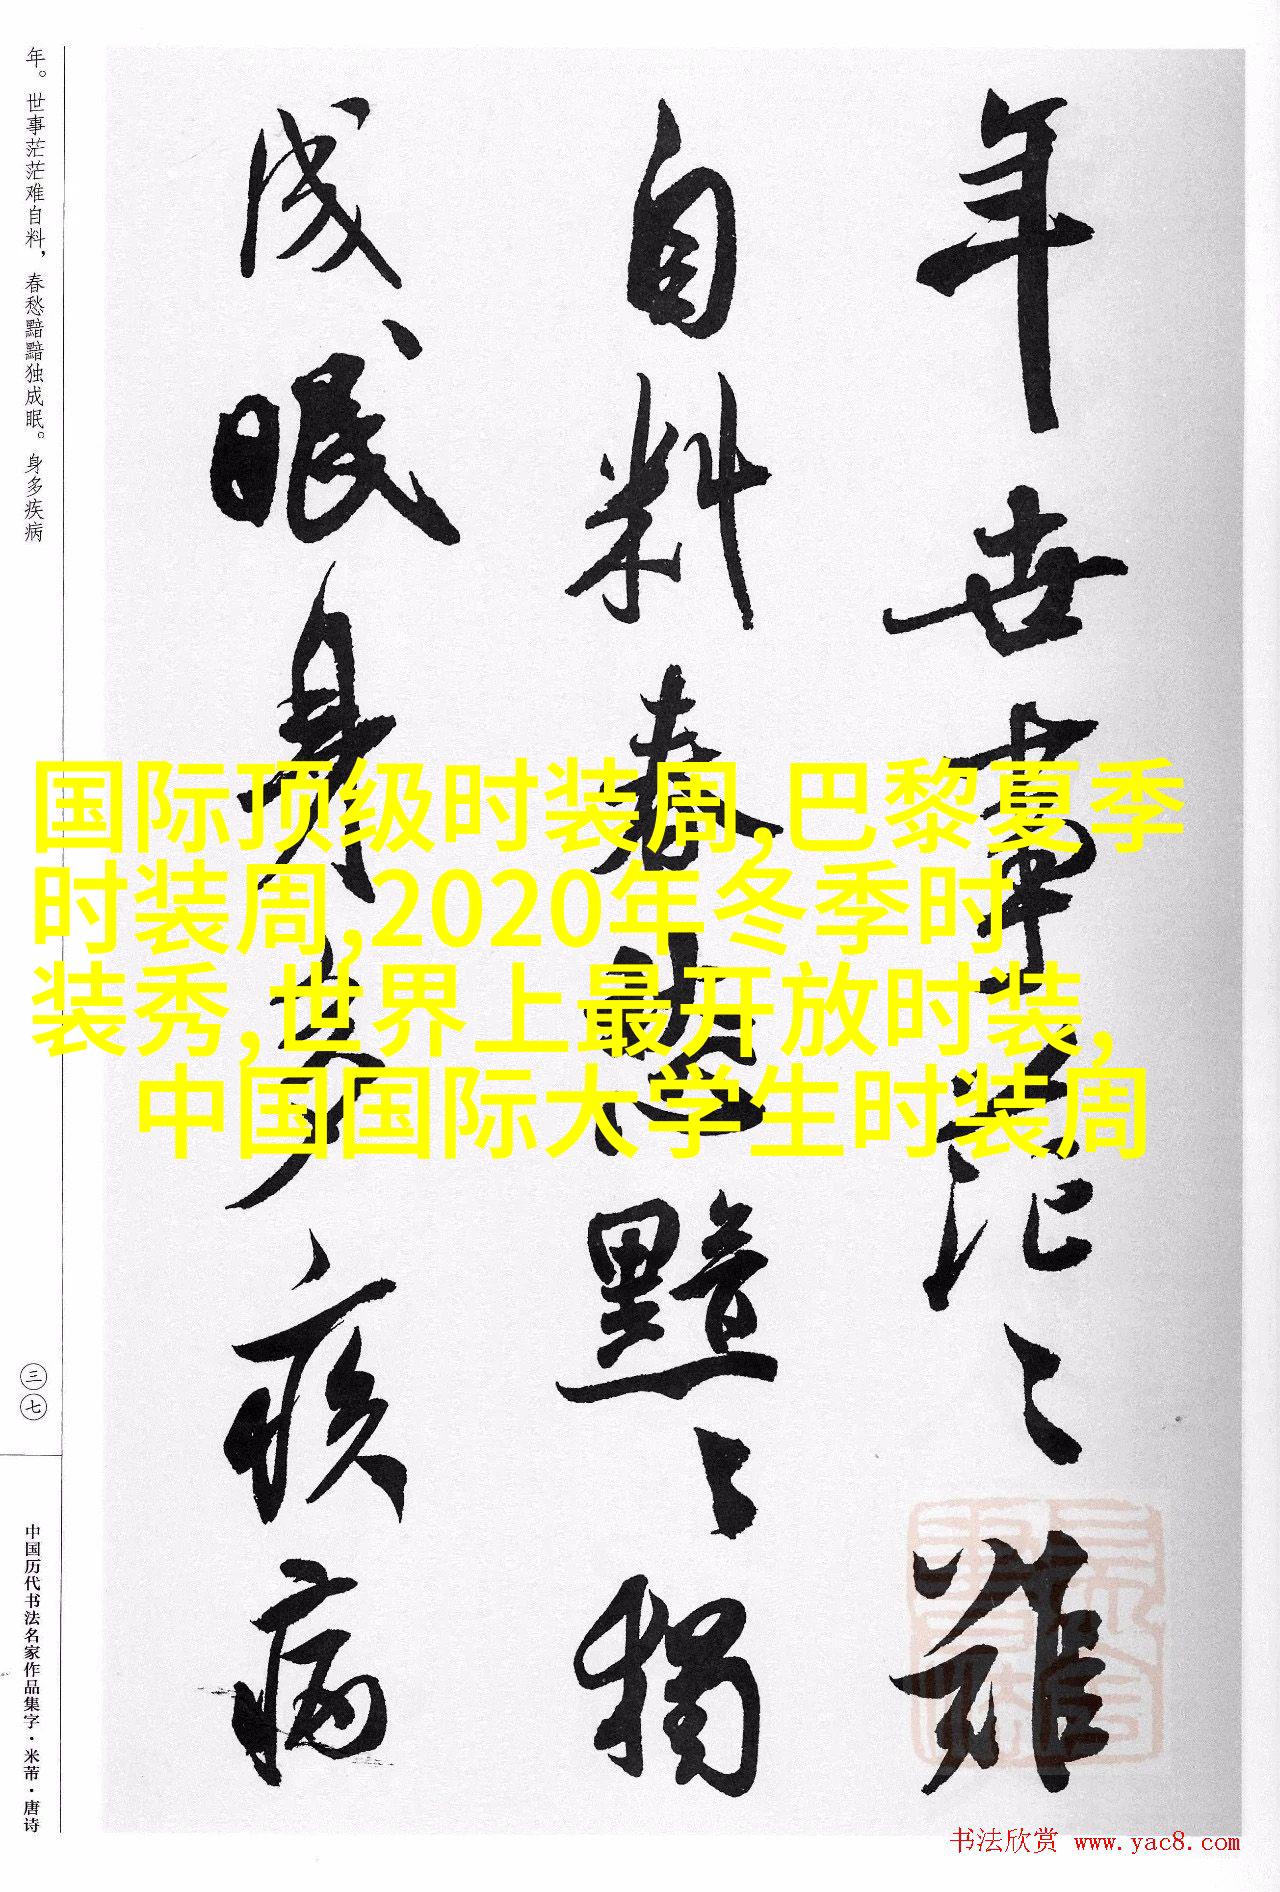 年世事茫〻難
自料春愁黯〻獨
成眠身多疾病
年。世事茫茫难自料，春愁黯黯独成眠。身多疾病
三七
中国历代书法名家作品集字·米芾·唐诗
国际顶级时装周,巴黎夏季
时装周,2020年冬季时
装秀,世界上最开放时装,
中国国际大学生时装周
书法欣赏 www.yac8.com